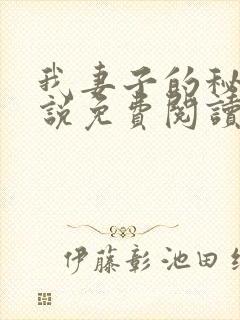 我妻子的秘
說免費閱讀
伊藤彰池田